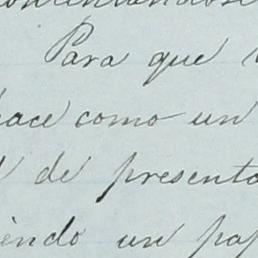 Para que
hace como un
de presenta
iendo un pap